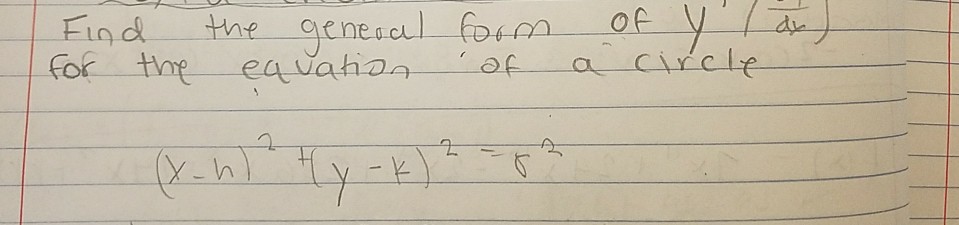 Find the general form of y' (dy/dx)
for the equation of a circle
(x-h)² + (y-k)² = r²